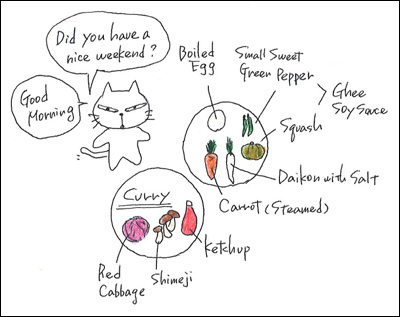 Did you have a
nice weekend?
Good
Morning
Boiled
Egg
Small Sweet
Green Pepper
Ghee
Soy Sauce
Squash
Daikon with Salt
Carrot (Steamed)
Curry
Ketchup
Red
Cabbage
Shimeji